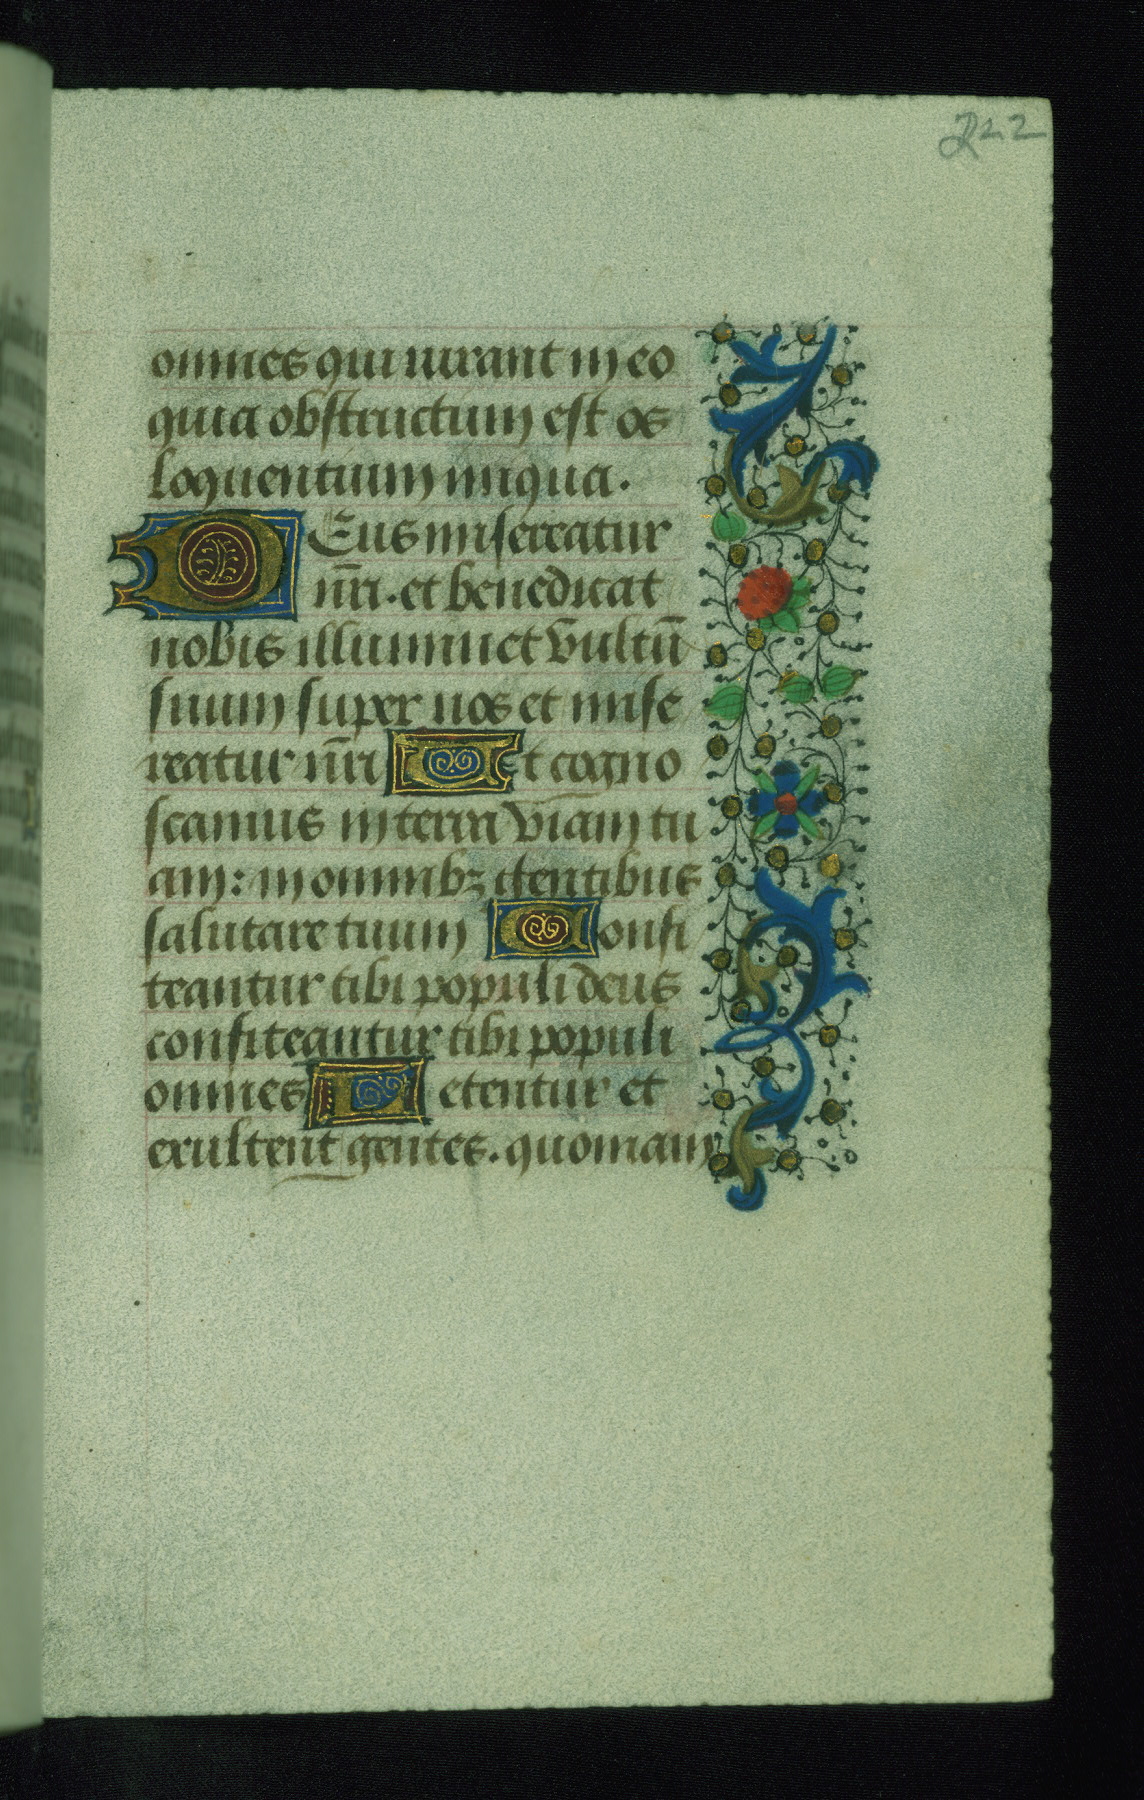 222
omnes qui iurant in eo
quia obstructum est os
loquentium iniqua.
Deus misereatur
nr̄i. et benedicat
nobis illuminet vultū
suum super nos et mise
reatur nr̄i Et cogno
scamus in terra viam tu
am: in omnibꝫ gentibus
salutare tuum Confi
teantur tibi populi deus
confiteantur tibi populi
omnes Letentur et
exultent gentes. quoniam